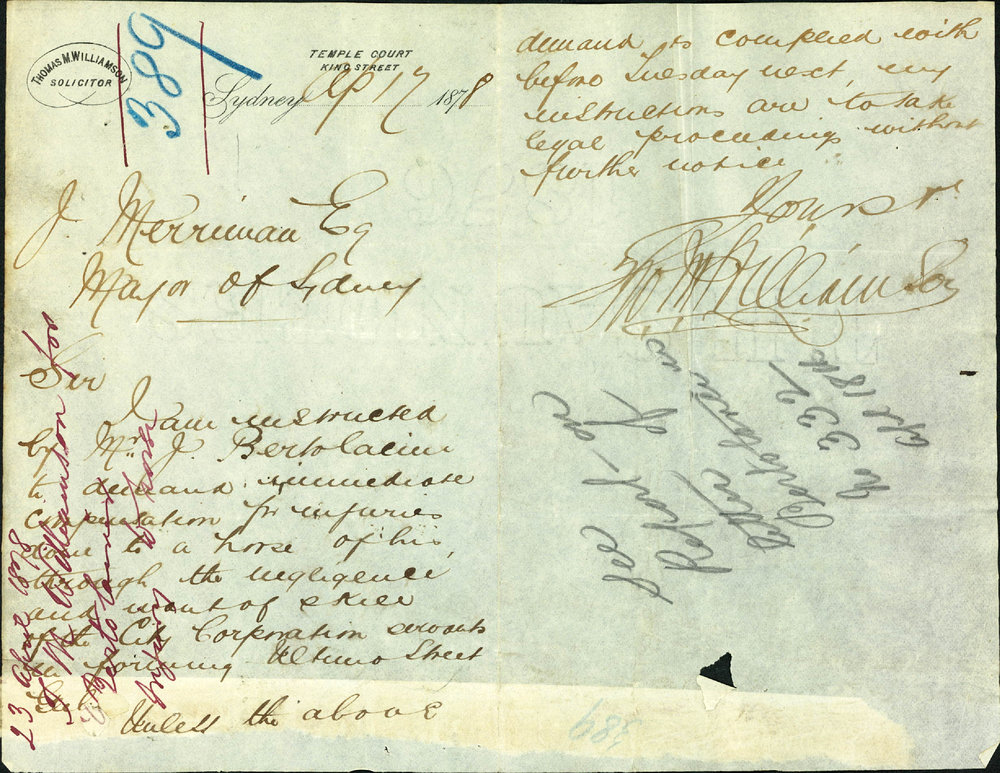 THOMAS M. WILLIAMSON
SOLICITOR
389
TEMPLE COURT
KING STREET
Sydney Ap 17 1878
J Merriman Esq
Mayor of Sydney
Sir
I am instructed
by Mr. J. Bertolacini
to demand immediate
compensation for injuries
done to a horse of his
through the negligence
and want of skill
of the City Corporation servants
in forming Ultimo Street
Unless the above
demand is complied with
before Tuesday next, my
instructions are to take
legal proceedings without
further notice
Yours
Tho M Williamson
23 April 1878
T. M. Williamson for
injuries to horse
See
Report on
letter
in
No 332
Apl 1878
389